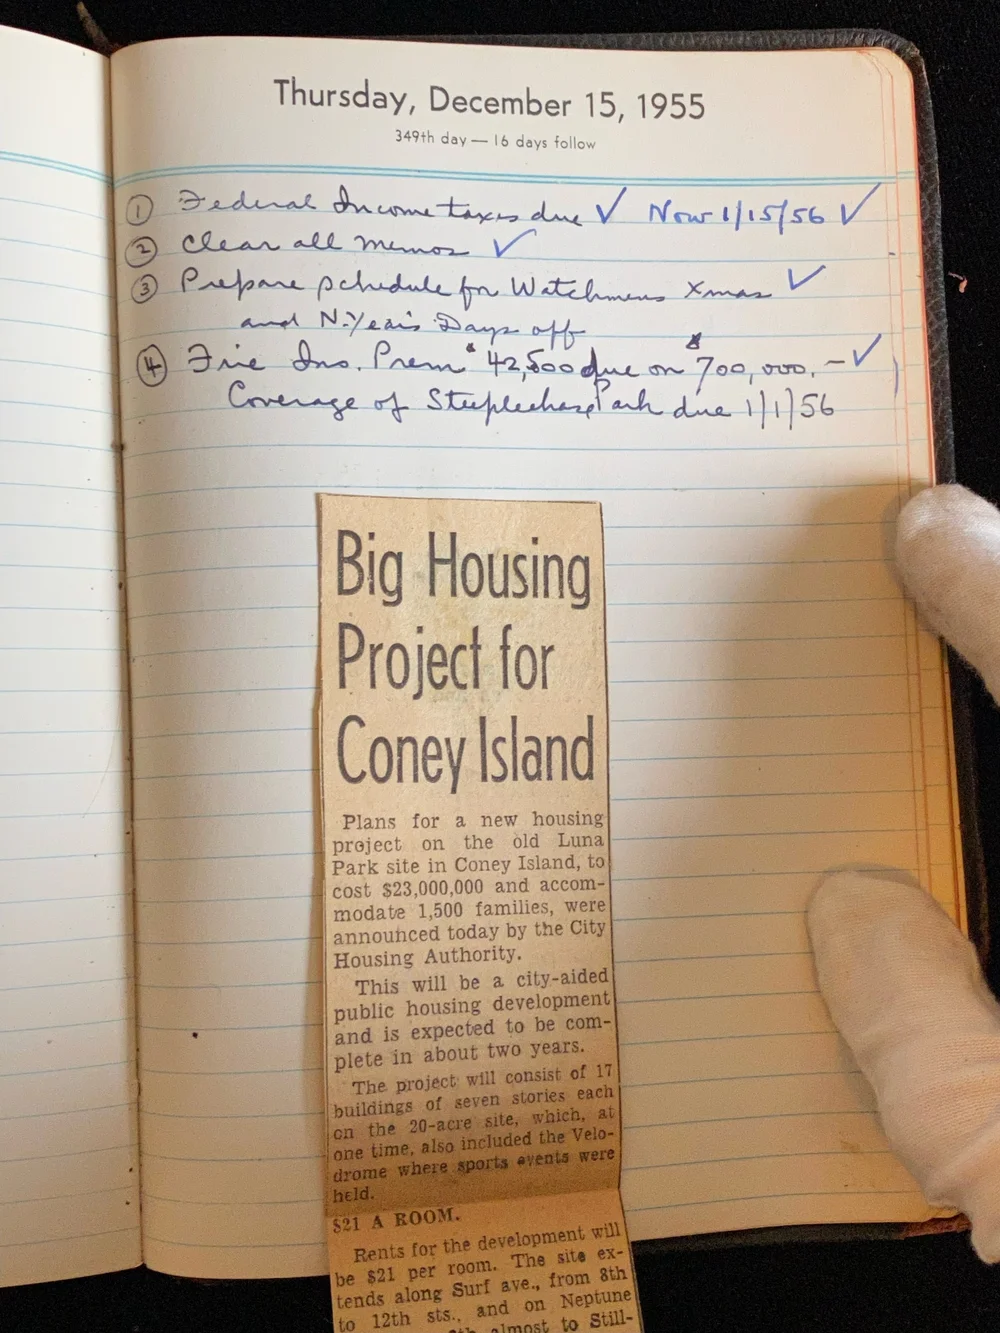 Thursday, December 15, 1955
349th day — 16 days follow
① Federal Income taxes due ✓ Now 1/15/56 ✓
② Clear all memos ✓
③ Prepare schedule for Watchmens Xmas ✓
and N. Years Days off
④ Fire Ins. Prem $42,500 due on $700,000.— ✓
Coverage of Steeplechase Park due 1/1/56
Big Housing
Project for
Coney Island
Plans for a new housing
project on the old Luna
Park site in Coney Island, to
cost $23,000,000 and accom-
modate 1,500 families, were
announced today by the City
Housing Authority.
This will be a city-aided
public housing development
and is expected to be com-
plete in about two years.
The project will consist of 17
buildings of seven stories each
on the 20-acre site, which, at
one time, also included the Velo-
drome where sports events were
held.
$21 A ROOM.
Rents for the development will
be $21 per room. The site ex-
tends along Surf ave., from 8th
to 12th sts., and on Neptune
almost to Still-